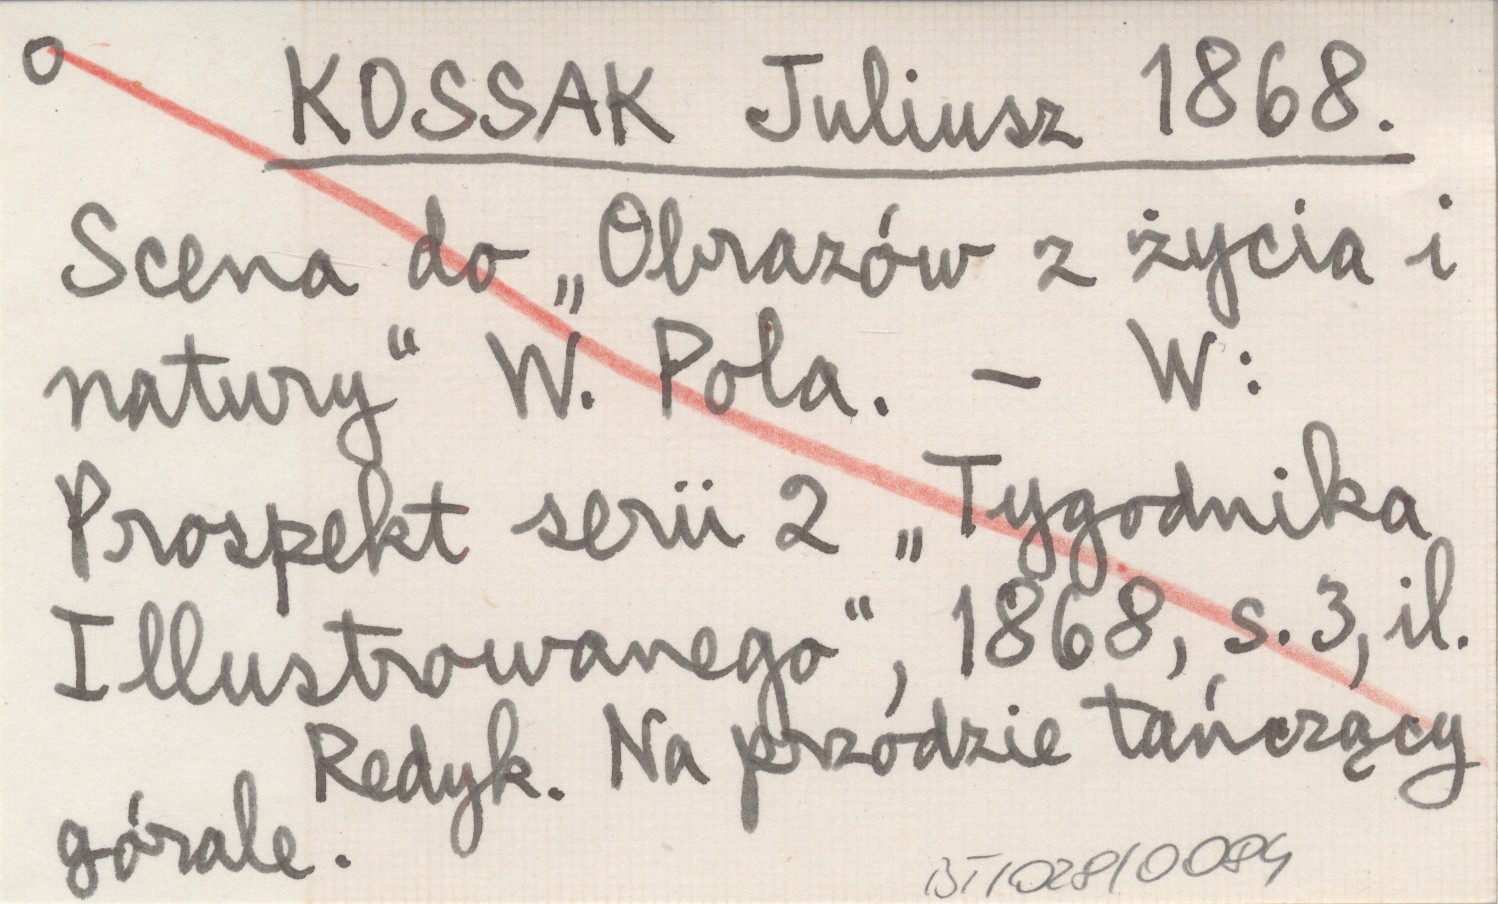 o KOSSAK Juliusz 1868.
Scena do „Obrazów z życia i
natury“ W. Pola. – W:
Prospekt serii 2 „Tygodnika
Illustrowanego“, 1868, s. 3, il.
Redyk. Na przódzie tańczący
górale.
BT/028/0084